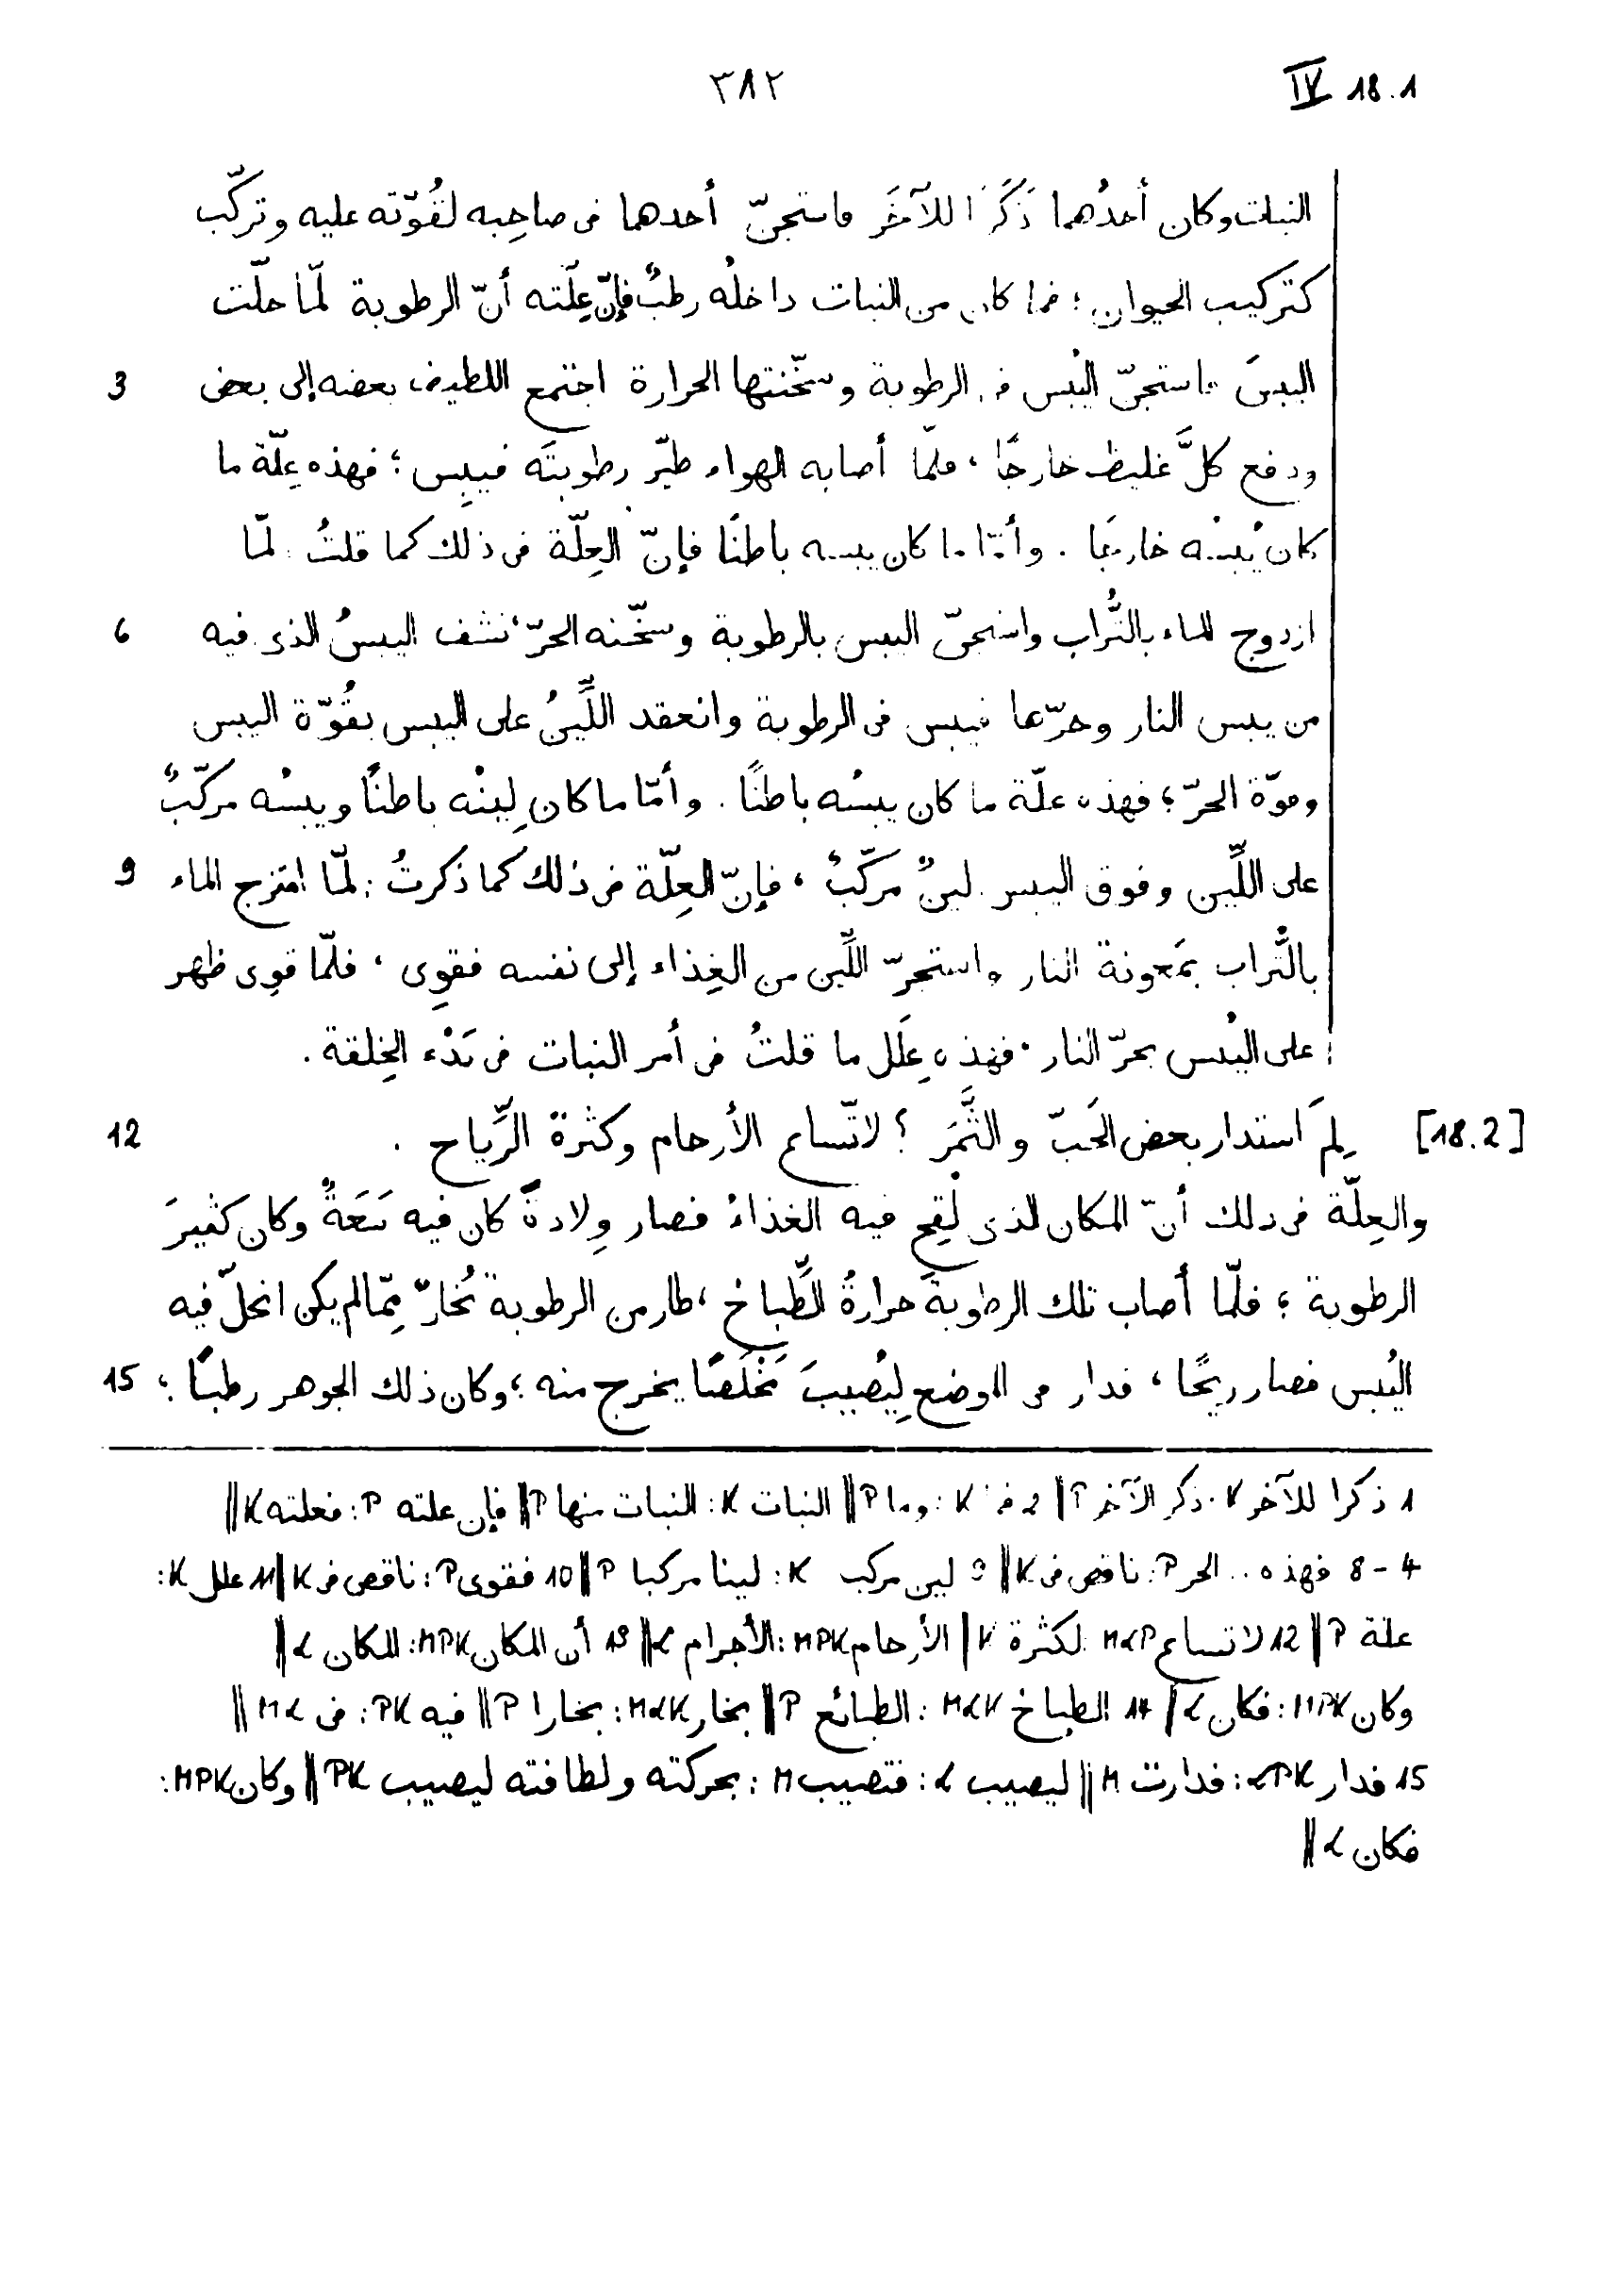 ٣٨٢ IV 18.1
النبات وكان أحدُهما ذَكَرًا للآخَر فاستجنّ أحدهما فى صاحِبه لقُوّته عليه وتركّب
كتركيب الحيوان ؛ فما كان من النبات داخلُه رطبٌ فإنّ عِلّته أنّ الرطوبة لمّا حلّت
3 اليبسَ فاستجنّ اليُبس فى الرطوبة وسخّنتها الحرارة اجتمع اللطيف بعضه إلى بعض
ودفع كلَّ غليظ خارجًا ، فلمّا أصابه الهواء طيّر رطوبتَه فيبِس ؛ فهذه عِلّة ما
كان يُبسُه خارجًا . وأمّا ما كان يبسه باطنًا فإنّ العِلّة فى ذلك كما قلتُ : لمّا
6 ازدوج الماء بالتُّراب واستجنّ اليبس بالرطوبة وسخّنه الحرّ ، نشف اليبسُ الذى فيه
من يبس النار وحرّها فيبس فى الرطوبة وانعقد اللَّيِنُ على اليبس بقُوّة اليبس
وقوّة الحرّ ؛ فهذه علّة ما كان يبسُه باطنًا . وأمّا ما كان لِينْه باطنًا ويبسُه مركّبٌ
9 على اللَّيِن وفوق اليبس لينٌ مركَّبٌ ، فإنّ العِلّة فى ذلك كما ذكرتُ : لمّا امتزج الماء
بالتُّراب بمَعونة النار واستجرّ اللَّيِن من الغِذاء إلى نفسه فقوِى ، فلمّا قوِى ظهر
على اليُبس بحرّ النار . فهذه عِلَل ما قلتُ فى أمر النبات فى بَدْء الخِلقة .
12 [18.2] لِمَ استدار بعض الحَبّ والثَّمَر ؟ لاتّساع الأرحام وكثرة الرِّياح .
والعِلّة فى ذلك أنّ المكان الذى لَقِح فيه الغذاءُ فصار وِلادةً كان فيه سَعَةٌ وكان كثيرَ
الرطوبة ؛ فلمّا أصاب تلك الرطوبةَ حرارةُ الطَّبّاخ ، طار من الرطوبة بُخارٌ مِمّا لم يكن انحلّ فيه
15 اليُبس فصار ريحًا ، فدار فى الموضع لِيُصيبَ مَخْلَصًا يخرج منه ؛ وكان ذلك الجوهر رطبًا ؛
1 ذكرا للآخر K : ذكر الآخر P || 2 فما K : وما P || النبات K : النبات منها P || فإن علته P : فعلته K ||
4 - 8 فهذه .. الحر P : ناقص فى K || 9 لين مركب K : لينا مركبا P || 10 فقوى P : ناقص فى K || 11 علل K :
علة P || 12 لاتساع MαP : لكثرة K || الأرحام MPK : الأجرام α || 13 أن المكان MPK : المكان α ||
وكان MPK : فكان α || 14 الطباخ MαK : الطبائع P || بخار MαK : بخارا P || فيه PK : فى Mα ||
15 فدار αPK : فدارت M || ليصيب α : فتصيب M : بحركته ولطافته ليصيب PK || وكان MPK :
فكان α ||